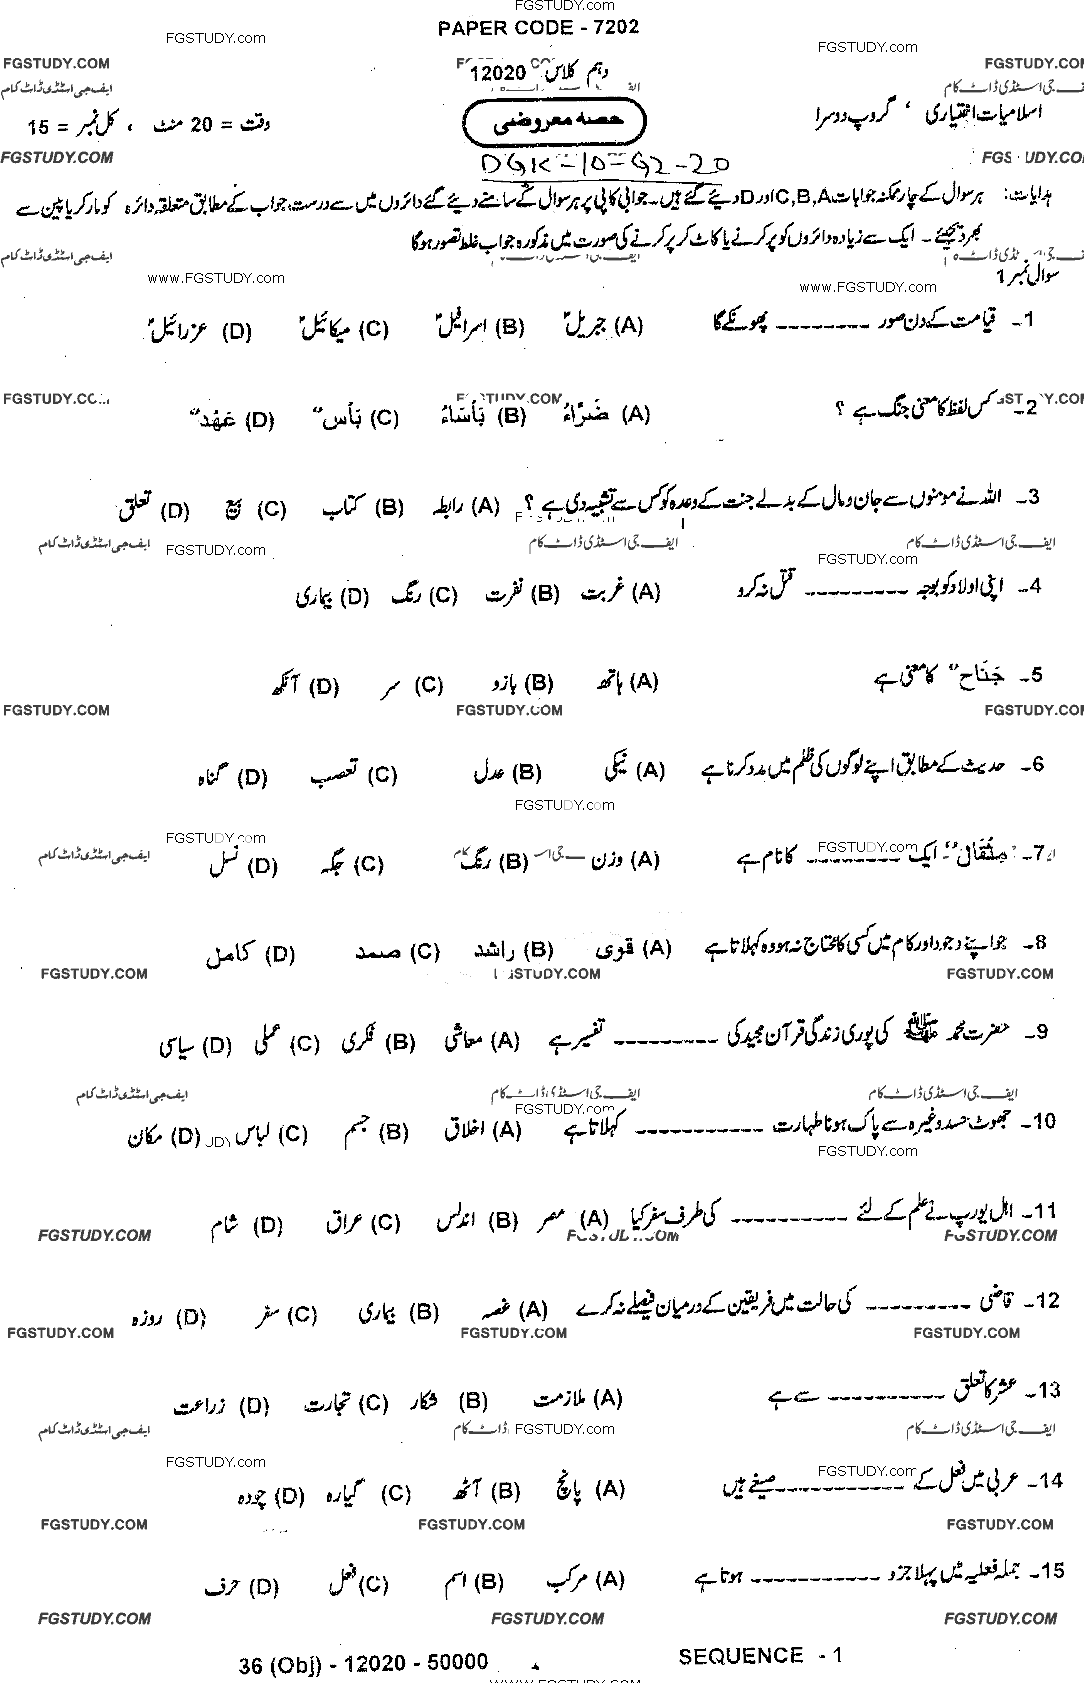 FGSTUDY.com
PAPER CODE - 7202
FGSTUDY.com
FGSTUDY.com
FGSTUDY.COM
دہم کلاس 12020
FGSTUDY.COM
ایف جی اسٹڈی ڈاٹ کام
اسلامیات اختیاری ، گروپ دوسرا
حصہ معروضی
وقت = 20 منٹ ، کل نمبر = 15
FGSTUDY.COM
DGK-10-G2-20
ہدایات: ہر سوال کے چار ممکنہ جوابات C,B,A اور D دیئے گئے ہیں۔ جوابی کاپی پر ہر سوال کے سامنے دیئے گئے دائروں میں سے درست جواب کے مطابق متعلقہ دائرہ کو مارکر یا پین سے
بھر دیجئے۔ ایک سے زیادہ دائروں کو پر کرنے یا کاٹ کر پر کرنے کی صورت میں مذکورہ جواب غلط تصور ہوگا
ایف جی اسٹڈی ڈاٹ کام
سوال نمبر 1
www.FGSTUDY.com
www.FGSTUDY.com
1۔ قیامت کے دن صور --------- پھونکے گا (A) جبریلؑ (B) اسرافیلؑ (C) میکائیلؑ (D) عزرائیلؑ
2۔ کس لفظ کا معنی جنگ ہے ؟ (A) ضَرَّاءُ (B) بَأسَاءُ (C) بَأس ٌ (D) عَهْد ٌ
3۔ اللہ نے مومنوں سے جان و مال کے بدلے جنت کے وعدہ کو کس سے تشبیہ دی ہے ؟ (A) رابطہ (B) کتاب (C) بیع (D) تعلق
ایف جی اسٹڈی ڈاٹ کام
ایف جی اسٹڈی ڈاٹ کام
FGSTUDY.com
ایف جی اسٹڈی ڈاٹ کام
FGSTUDY.com
4۔ اپنی اولاد کو بوجہ --------- قتل نہ کرو (A) غربت (B) نفرت (C) رنگ (D) بیماری
5۔ جَنَاح ٌ کا معنی ہے (A) ہاتھ (B) بازو (C) سر (D) آنکھ
FGSTUDY.COM
FGSTUDY.COM
FGSTUDY.COM
6۔ حدیث کے مطابق اپنے لوگوں کی ظلم میں مدد کرنا ہے (A) نیکی (B) عدل (C) تعصب (D) گناہ
FGSTUDY.com
FGSTUDY.com
7۔ مِثْقَال ٌ ایک --------- کا نام ہے (A) وزن (B) رنگ (C) جگہ (D) نسل
8۔ جو اپنے وجود اور کام میں کسی کا محتاج نہ ہو وہ کہلاتا ہے (A) قوی (B) راشد (C) صمد (D) کامل
FGSTUDY.COM
FGSTUDY.COM
9۔ حضرت محمد ﷺ کی پوری زندگی قرآن مجید کی --------- تفسیر ہے (A) معاشی (B) فکری (C) عملی (D) سیاسی
ایف جی اسٹڈی ڈاٹ کام
ایف جی اسٹڈی ڈاٹ کام
ایف جی اسٹڈی ڈاٹ کام
FGSTUDY.com
10۔ جھوٹ حسد وغیرہ سے پاک ہونا طہارت ----------- کہلاتا ہے (A) اخلاق (B) جسم (C) لباس (D) مکان
FGSTUDY.com
11۔ اہل یورپ نے علم کے لئے ---------- کی طرف سفر کیا (A) مصر (B) اندلس (C) عراق (D) شام
FGSTUDY.COM
FGSTUDY.COM
12۔ قاضی --------- کی حالت میں فریقین کے درمیان فیصلے نہ کرے (A) غصہ (B) بیماری (C) سفر (D) روزہ
FGSTUDY.COM
FGSTUDY.COM
FGSTUDY.COM
13۔ عشر کا تعلق ---------- سے ہے (A) ملازمت (B) شکار (C) تجارت (D) زراعت
ایف جی اسٹڈی ڈاٹ کام
FGSTUDY.com
ایف جی اسٹڈی ڈاٹ کام
FGSTUDY.com
14۔ عربی میں فعل کے ----------- صیغے ہیں (A) پانچ (B) آٹھ (C) گیارہ (D) چودہ
FGSTUDY.COM
FGSTUDY.COM
FGSTUDY.COM
15۔ جملہ فعلیہ میں پہلا جزو ----------- ہوتا ہے (A) مرکب (B) اسم (C) فعل (D) حرف
FGSTUDY.COM
FGSTUDY.COM
FGSTUDY.COM
36 (Obj) - 12020 - 50000
SEQUENCE - 1
www.FGSTUDY.COM